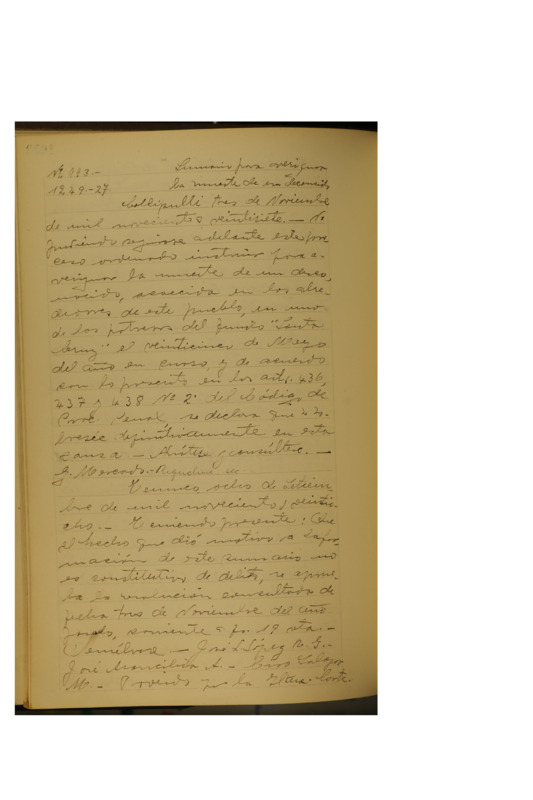 Nº 393.- Sumario para averiguar
1239-27. la muerte de un desconocido
Collipulli tres de Noviembre
de mil novecientos veintisiete. — No
pudiendo seguirse adelante este pro
ceso ordenado instruir para a-
veriguar la muerte de un desco-
nocido, acaecida en los alre-
dedores de este pueblo, en uno
de los potreros del fundo "Santa
Cruz" el veinticinco de Mayo
del año en curso, y de acuerdo
con lo prescrito en los arts. 436,
437 y 438 Nº 2º del Código de
Proc. Penal se declara que se so-
bresée definitivamente en esta
causa. — Anótese y consúltese. —
G. Mercado.-
Temuco, ocho de
bre de mil novecientos veintio-
cho. — Teniendo presente: Que
el hecho que dió motivo a la for
mación de este sumario no
es constitutivo de delito, se aprue-
ba la resolución consultada de
fecha tres de Noviembre del año
pasado, corriente a fs. 19 vta. —
Devuélvase — José L. López
José A — Ciro Salazar
M. — Proveído por la Iltma. Corte.